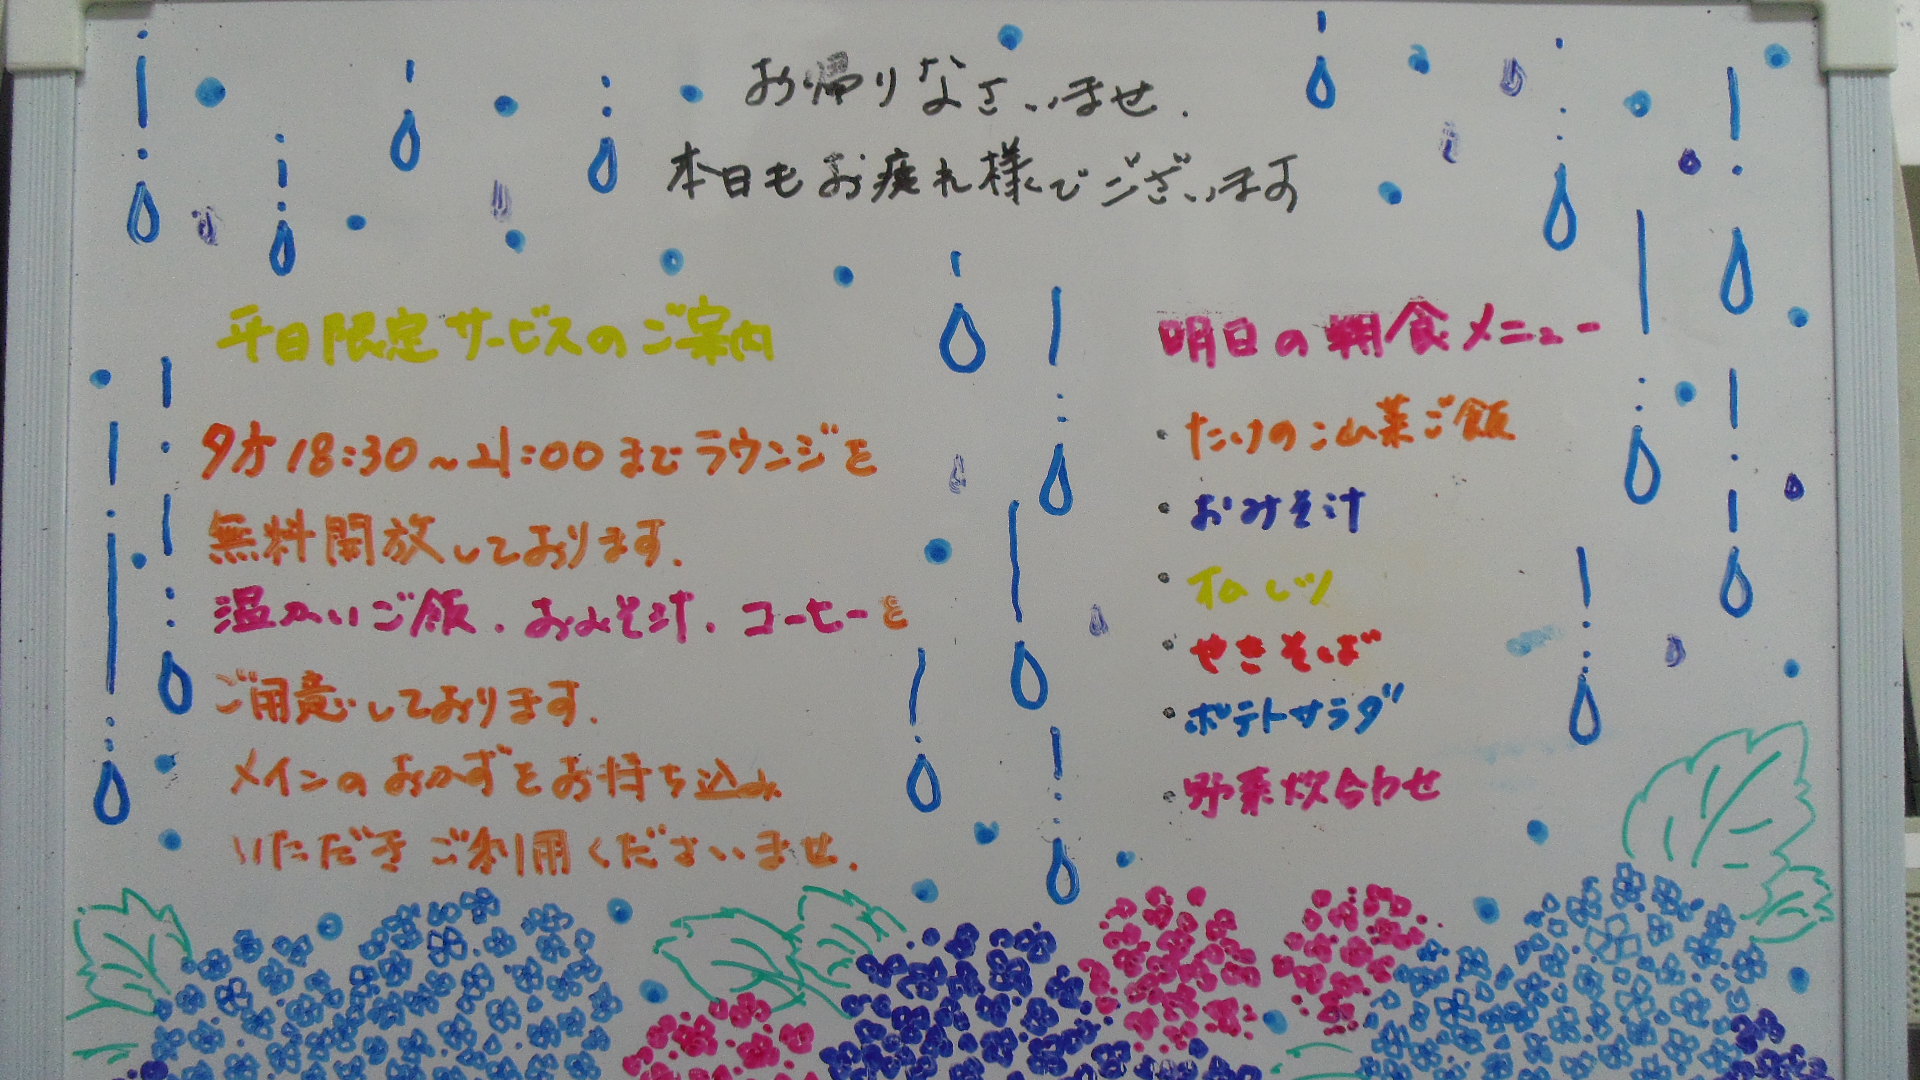 お帰りなさいませ.
本日もお疲れ様でございます
平日限定サービスのご案内
夕方18:30～21:00までラウンジを
無料開放しております.
温かいご飯.おみそ汁.コーヒーを
ご用意しております.
メインのおかずをお持ち込み
いただきご利用くださいませ.
明日の朝食メニュー
・たけのこ山菜ご飯
・おみそ汁
・オムレツ
・やきそば
・ポテトサラダ
・野菜炊合わせ